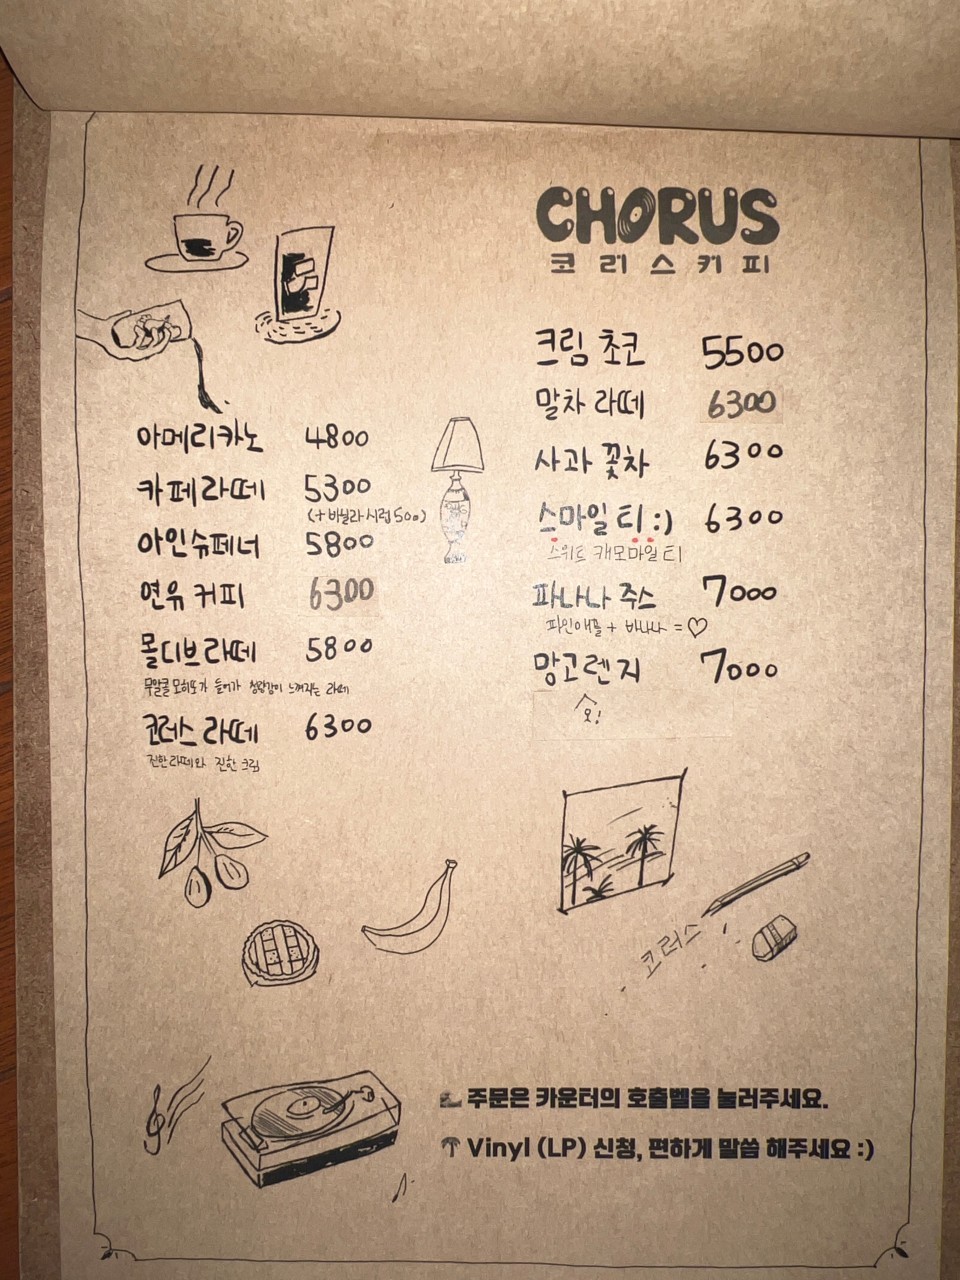 CHORUS
코러스커피
아메리카노 4800
카페라떼 5300
(+바닐라시럽 500)
아인슈페너 5800
연유 커피 6300
몰디브라떼 5800
무알콜 모히또가 들어가 청량감이 느껴지는 라떼
코러스 라떼 6300
진한라떼와 진한 크림
크림 초코 5500
말차 라떼 6300
사과 꽃차 6300
스마일 티 :) 6300
스위트 캐모마일 티
파나나 주스 7000
파인애플 + 바나나 = ♡
망고렌지 7000
오!
코러스
주문은 카운터의 호출벨을 눌러주세요.
Vinyl (LP) 신청, 편하게 말씀 해주세요 :)